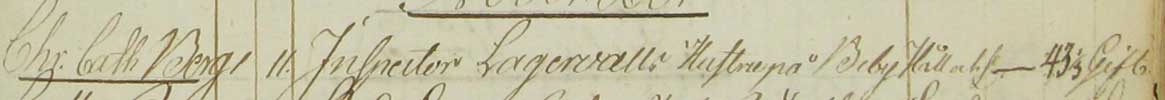 Chr. Cath. Berg 11. Inspector Lagervalls Hustru på Beby 43 Gift.